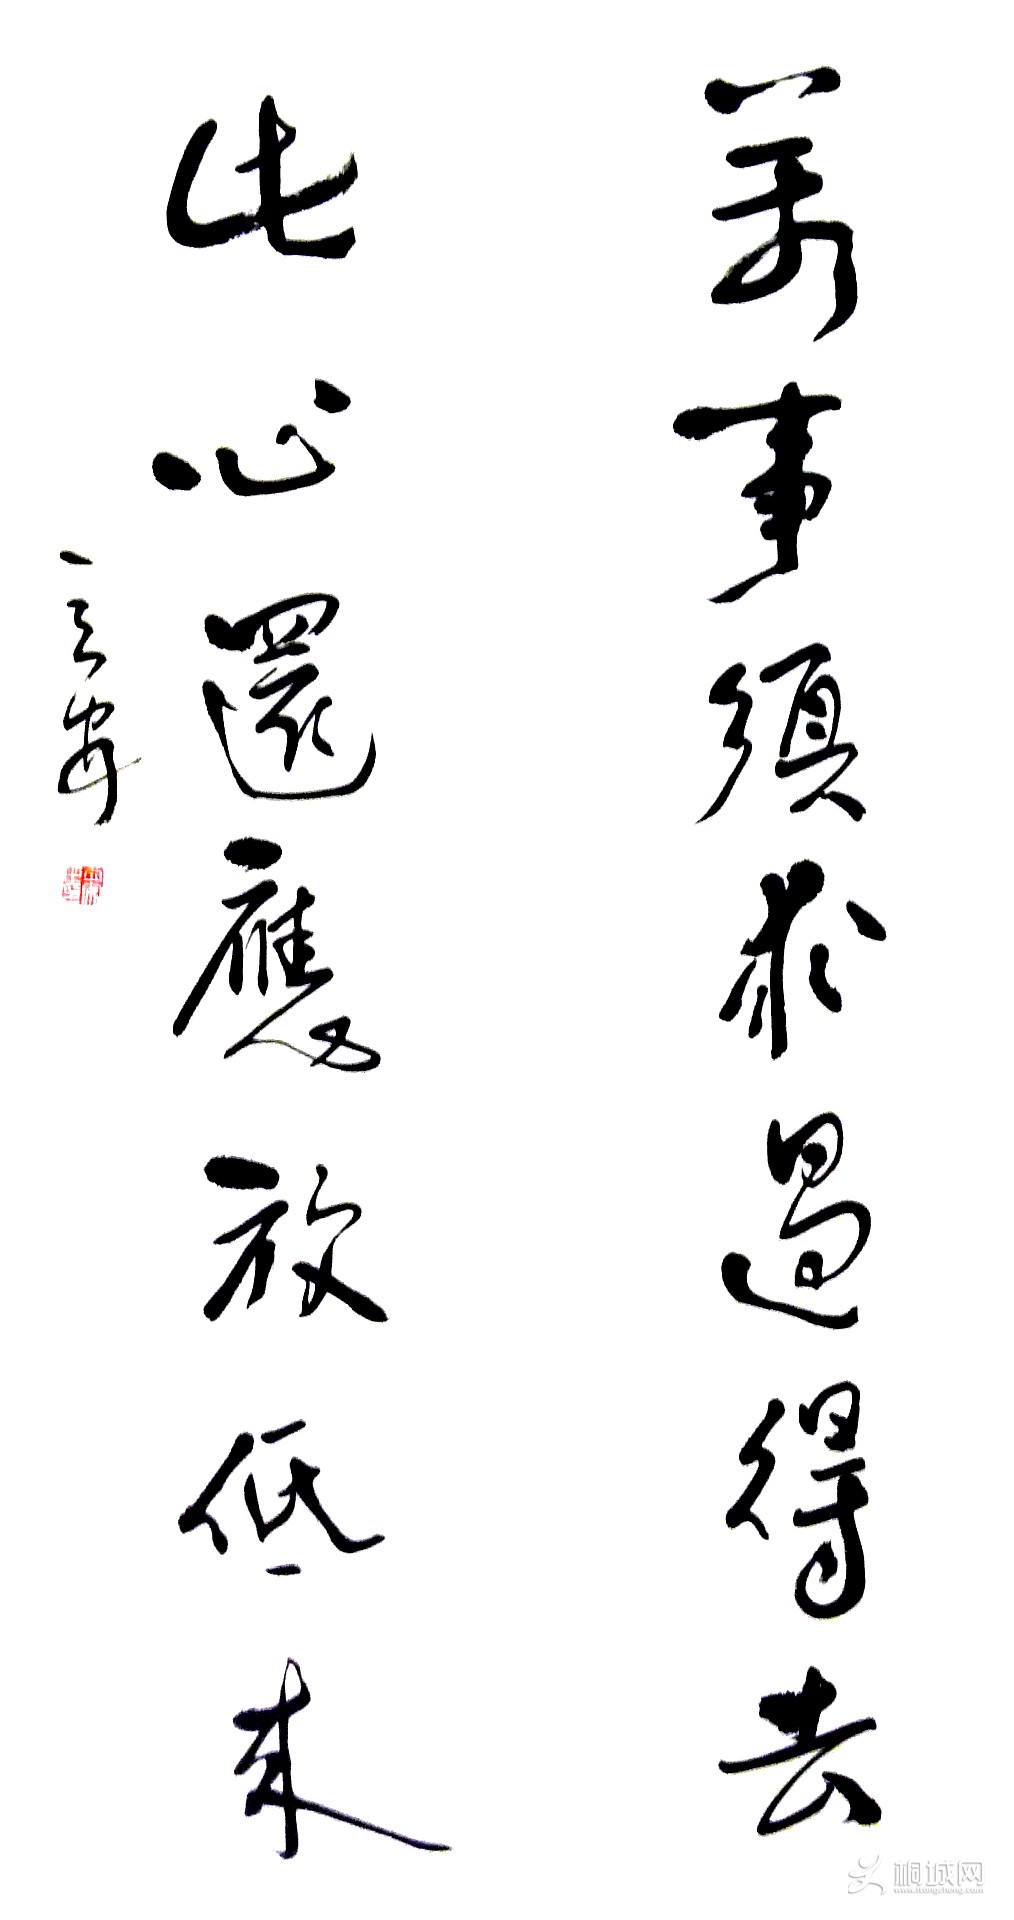 萬事須求過得去
此心還應放低來
桐城网
www.itongcheng.com